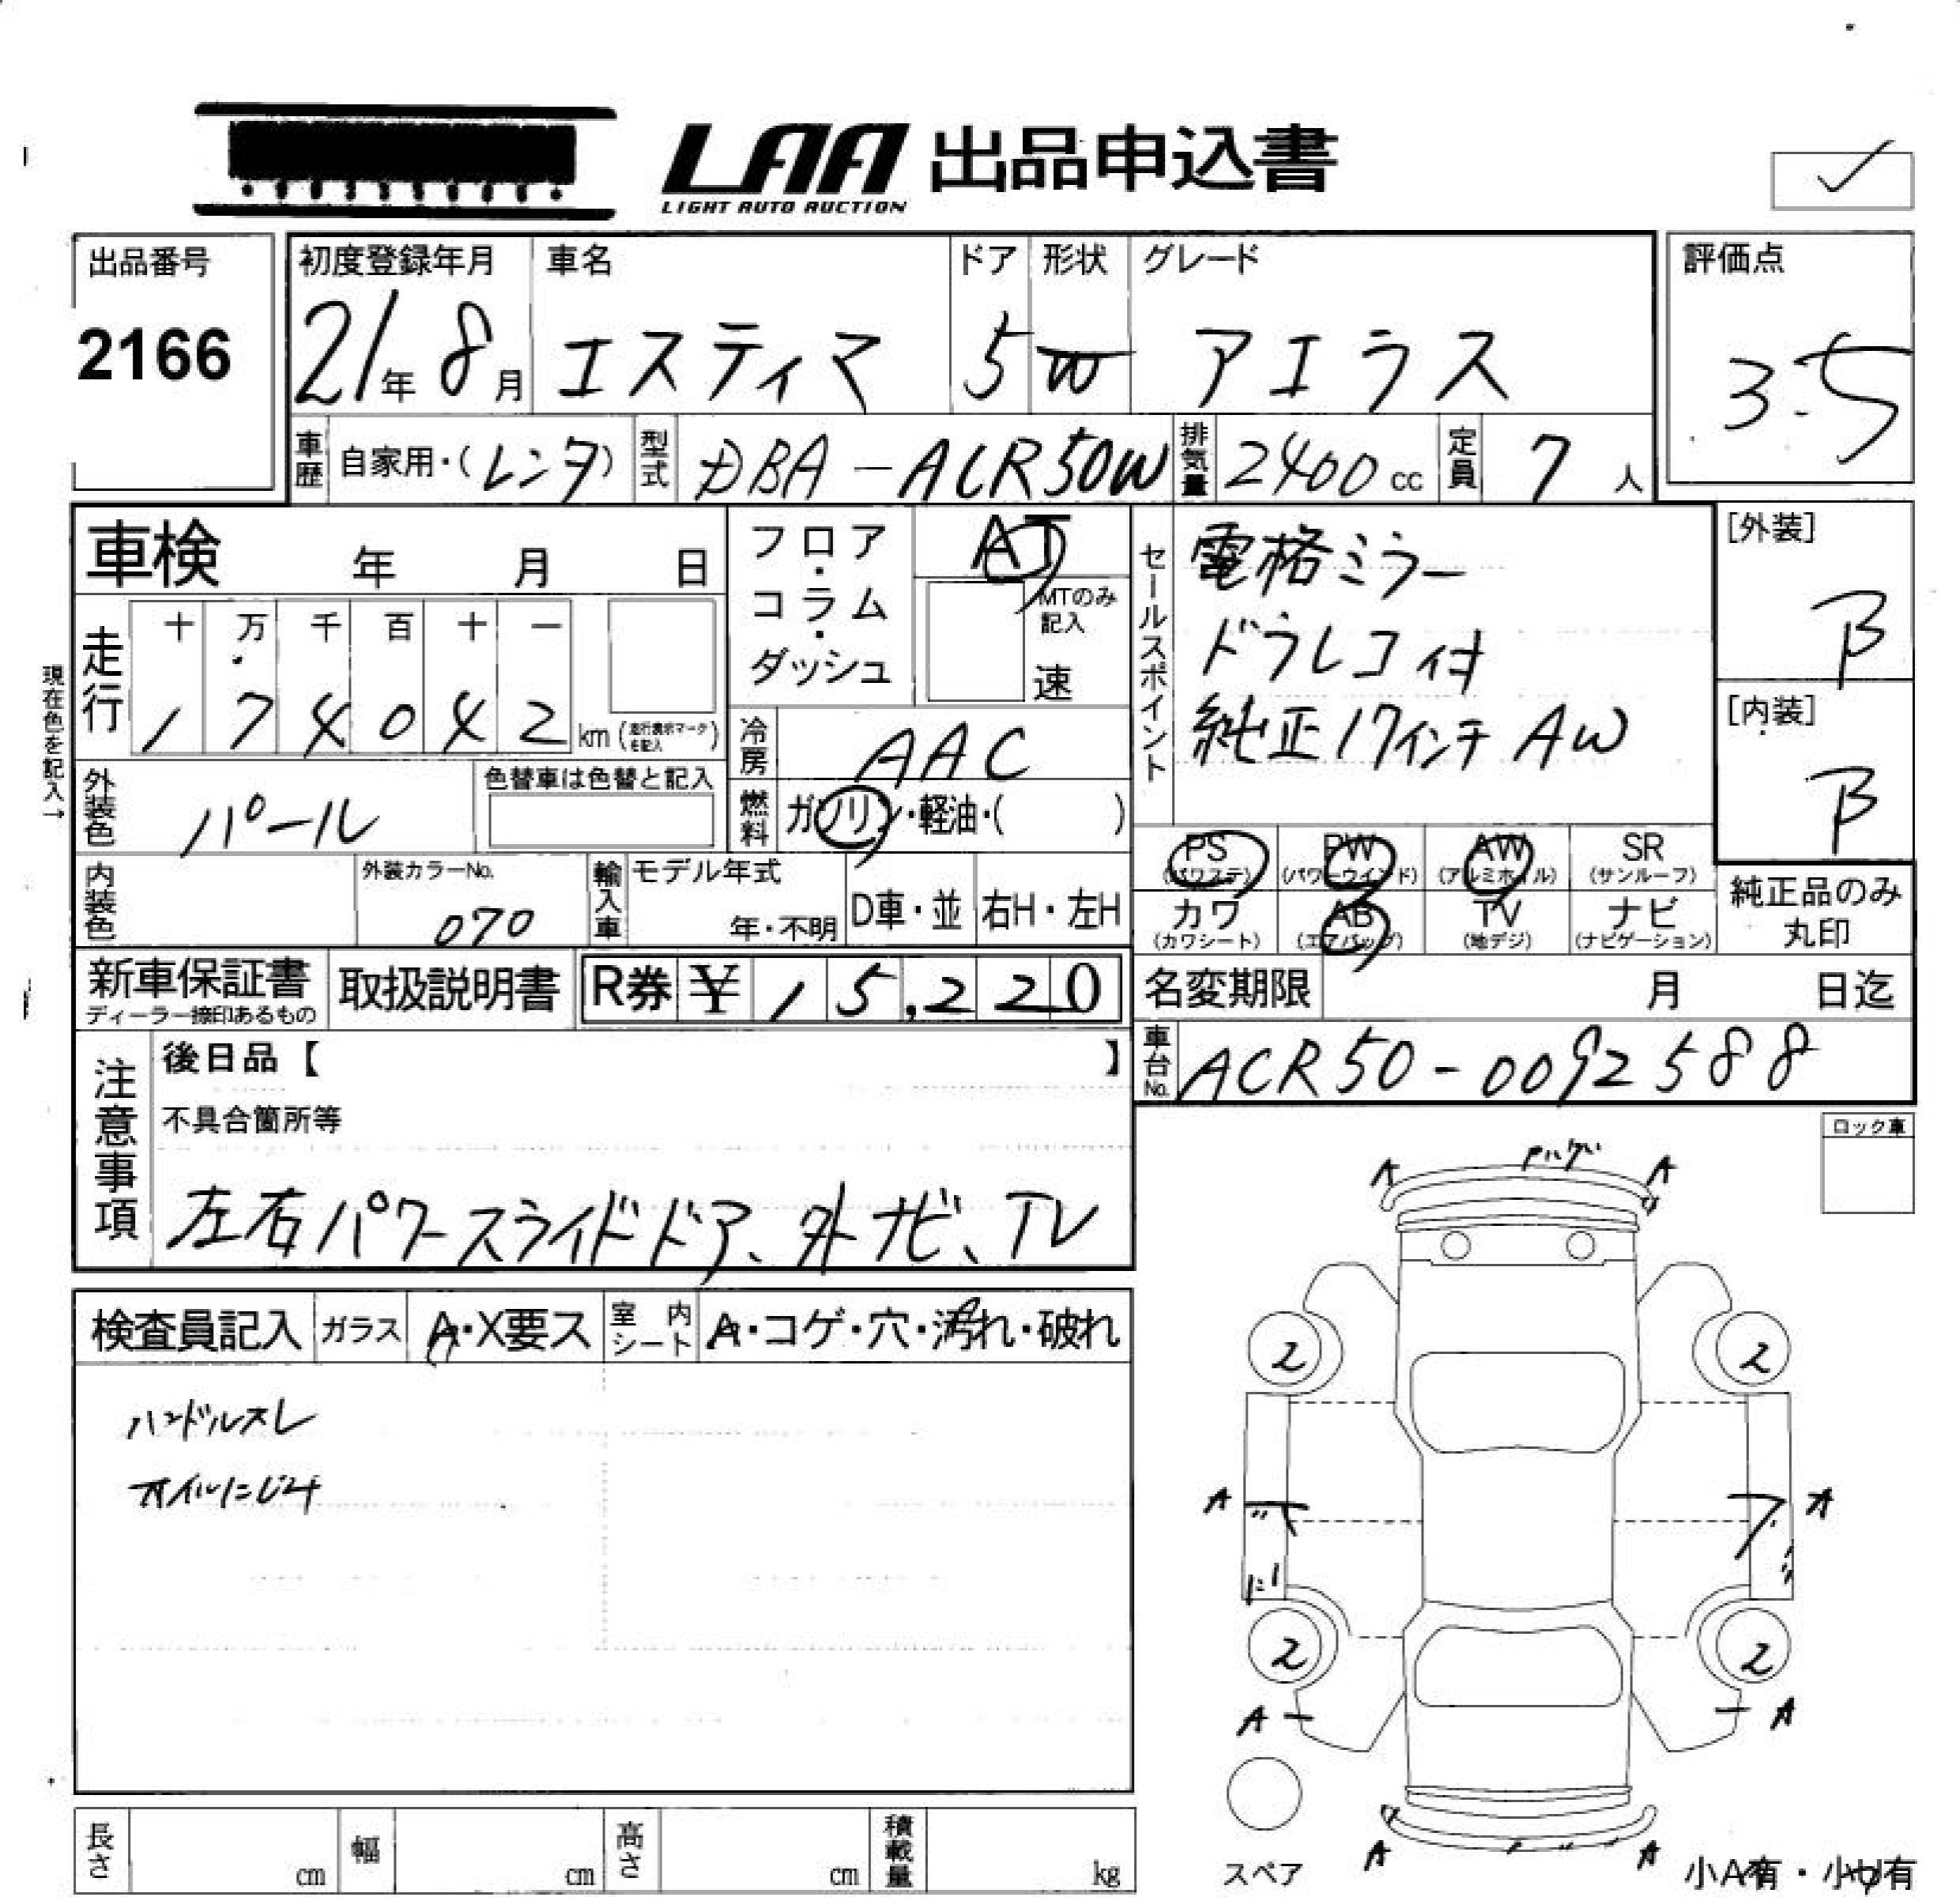 LAA 出品申込書
LIGHT AUTO AUCTION
出品番号
2166
初度登録年月 車名 ドア 形状 グレード
21年 8月 エスティマ 5 W アエラス
評価点
3.5
車歴 自家用・(レンタ) 型式 DBA-ACR50W 排気量 2400cc 定員 7人
車検 年 月 日
フロア・コラム・ダッシュ
AT
MTのみ記入
速
走行 十 万 千 百 十 一
174042 km
現在色を記入→
冷房 AAC
外装色 パール
色替車は色替と記入
燃料 ガソリン・軽油・( )
内装色
外装カラーNo.
070
輸入車 モデル年式
年・不明 D車・並 右H・左H
セールスポイント
電格ミラー
ドラレコ付
純正17インチAW
[外装]
B
[内装]
B
PS PW AW SR
(パワステ) (パワーウインド) (アルミホイル) (サンルーフ)
カワ AB TV ナビ
(カワシート) (エアバッグ) (地デジ) (ナビゲーション)
純正品のみ
丸印
新車保証書 取扱説明書 R券 ¥15,220
ディーラー捺印あるもの
名変期限 月 日迄
車台No. ACR50-0092588
注意事項
後日品【 】
不具合箇所等
左右パワースライドドア、外ナビ、TV
ロック車
検査員記入 ガラス A・X要ス 室内シート A・コゲ・穴・汚れ・破れ
ハンドルスレ
オイルにじみ
A A
2 2
A A
2 2
A A
A A
スペア
小A有・小U有
長さ cm 幅 cm 高さ cm 積載量 kg